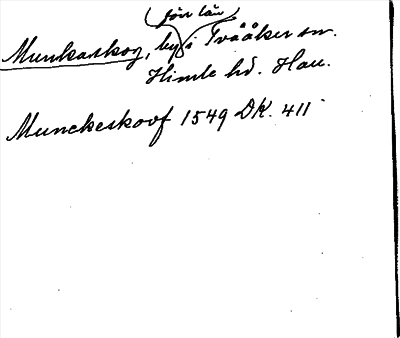 (förr län)
Munkaskog, by i Tvååker sn.
Himle hd. Hall.
Munckeskoof 1549 DK. 411